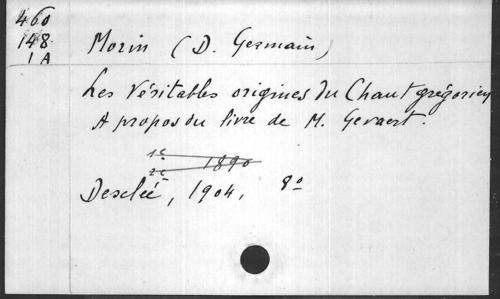 460
148
1 A
Morin (D. Germain)
Les Véritables origines du Chant grégorien
A propos du livre de M. Gevaert.
1e 1890
2e
Desclée, 1904, 8º